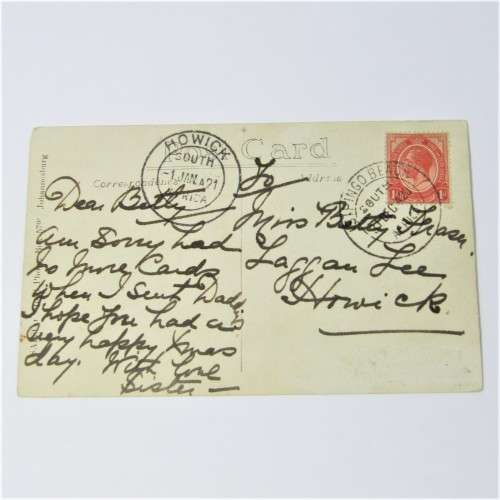 Card
Correspondence
Address
HOWICK
SOUTH
1 JAN 21
AFRICA
BEACH
SOUTH
Dear Betty
Am Sorry had
no more Cards
when I sent Dads
I hope you had a
very happy Xmas
day. With love
Sister
To
Miss Betty Fraser
Laggan Lee
Howick
Johannesburg